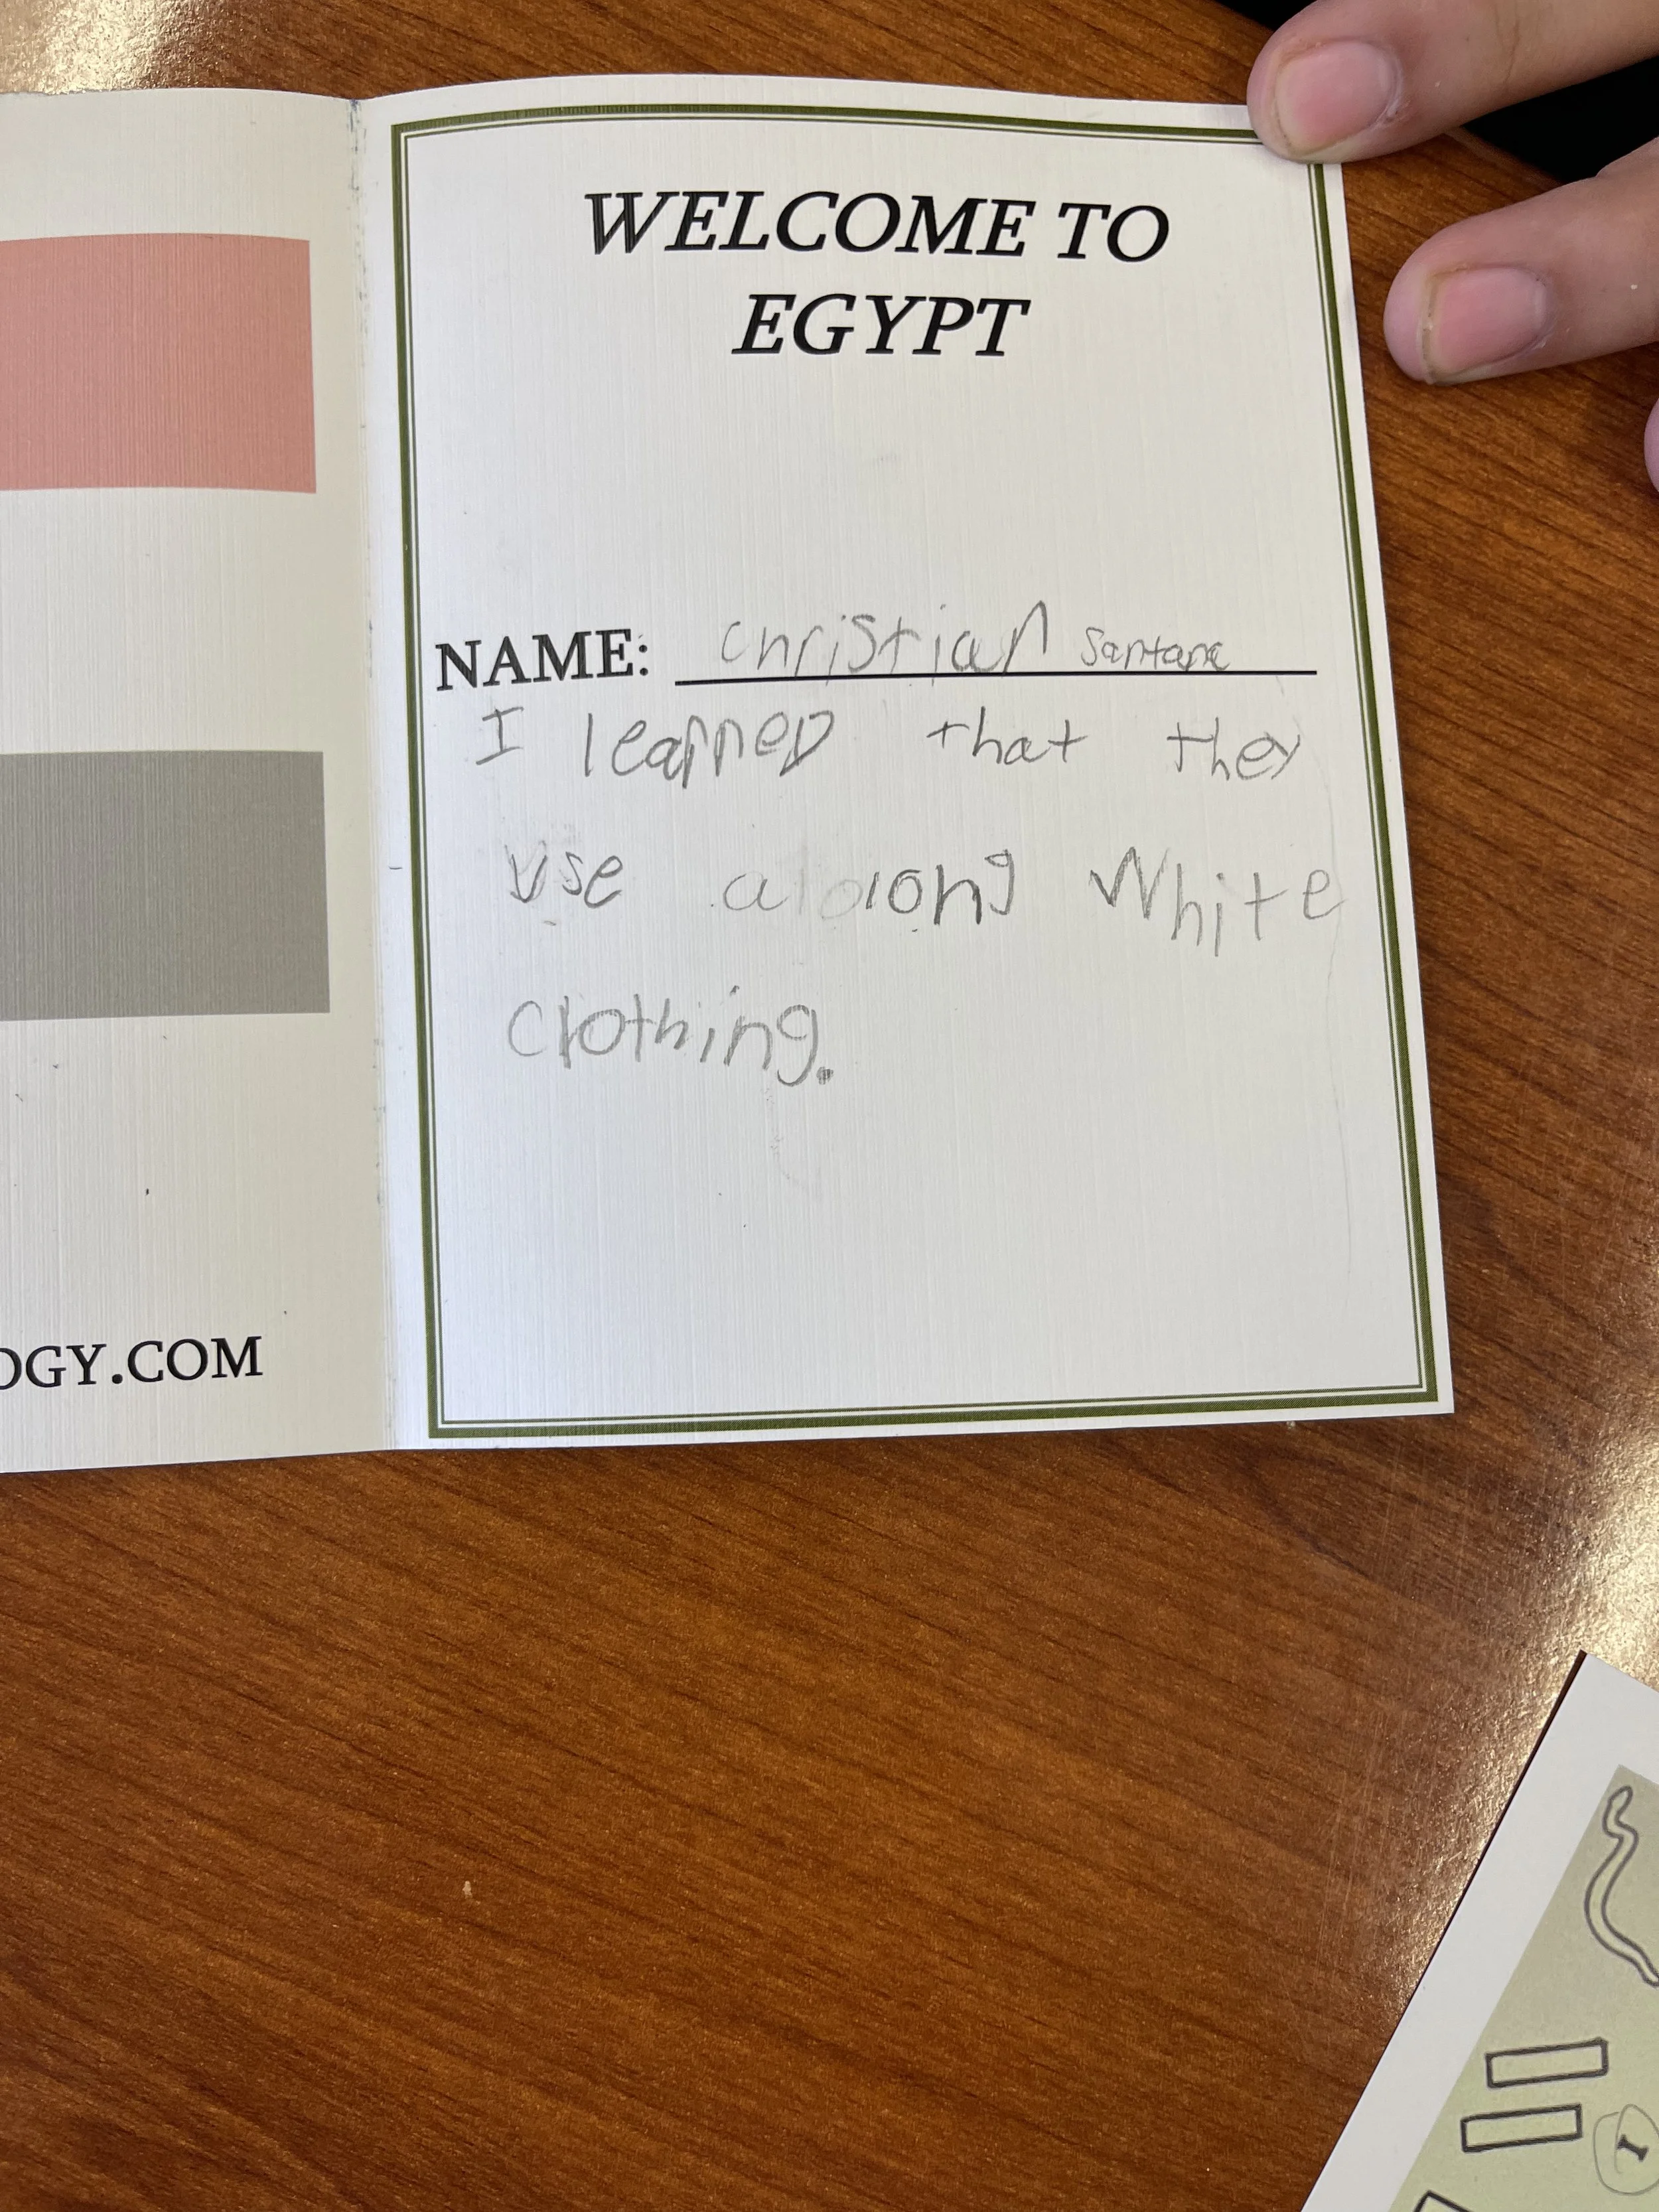 WELCOME TO
EGYPT
NAME: Christian Santana
I learned that they
use a long White
clothing.
OGY.COM
I